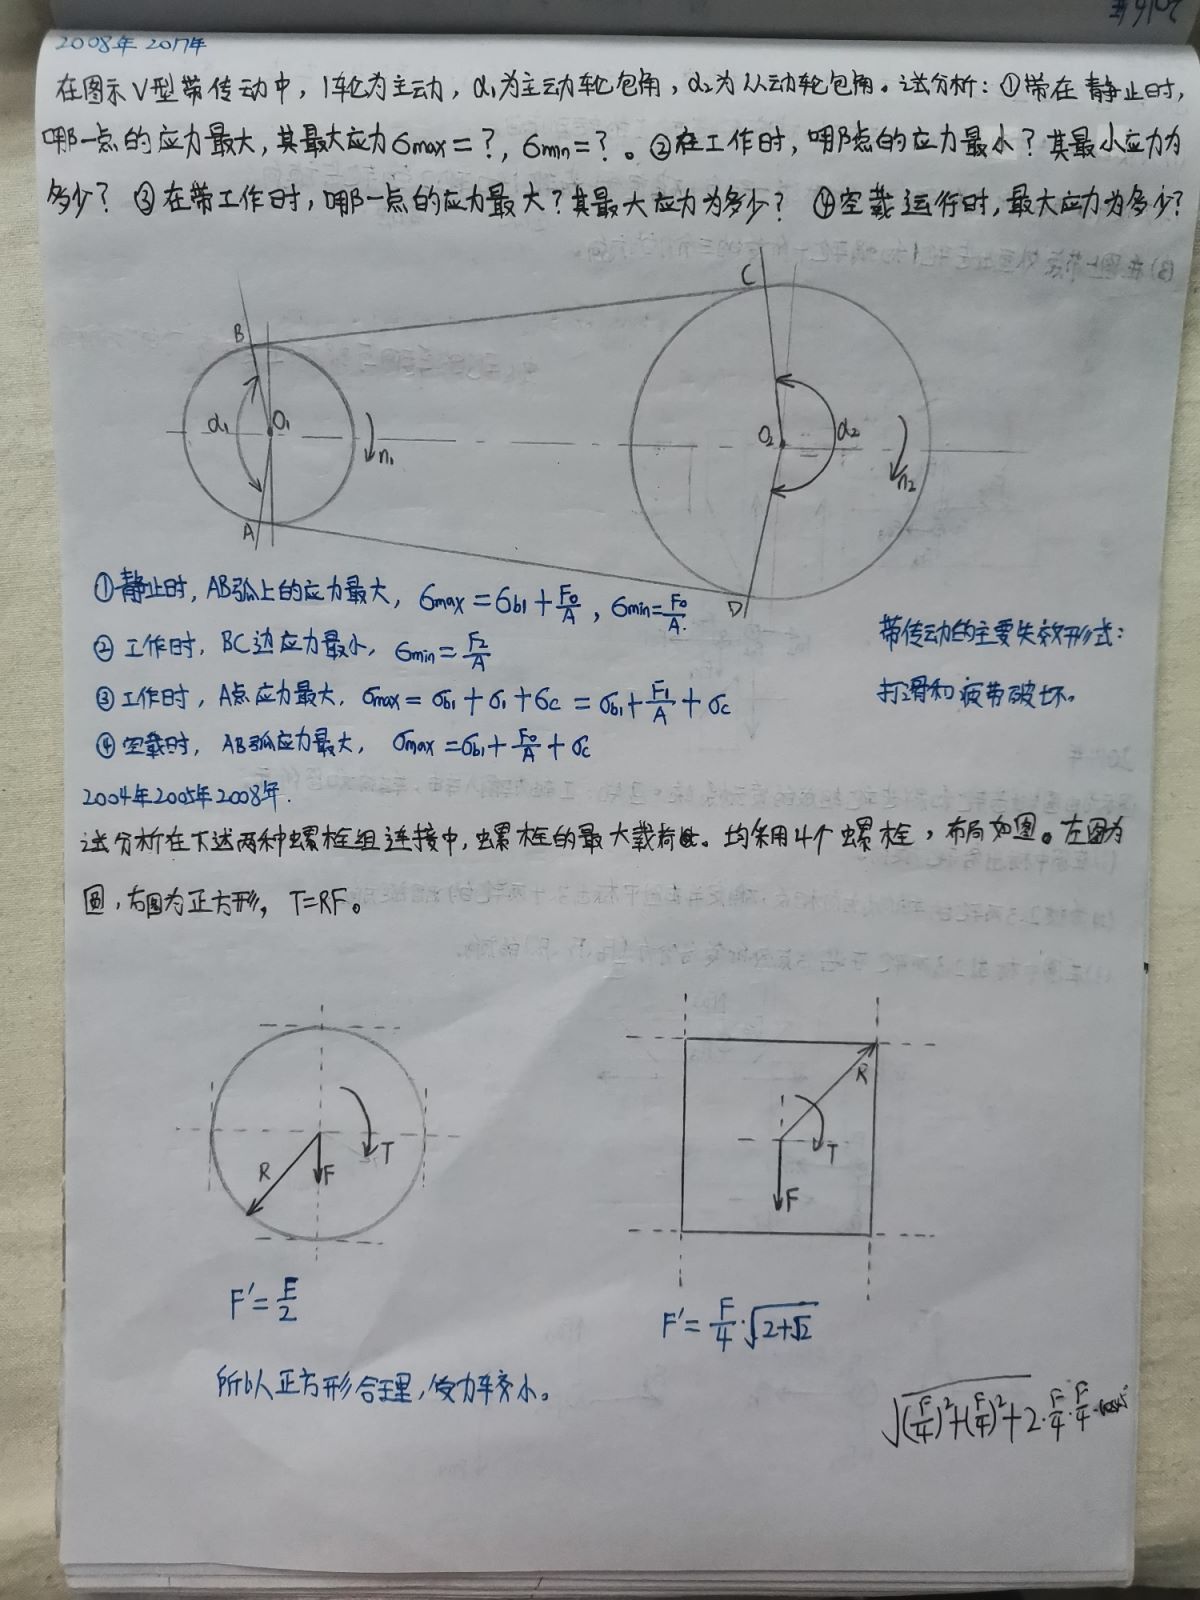 2008年 2017年
在图示V型带传动中，1轮为主动，α₁为主动轮包角，α₂为从动轮包角。试分析：①带在静止时，
哪一点的应力最大，其最大应力σmax=？，σmin=？。②在工作时，哪点的应力最小？其最小应力为
多少？ ③在带工作时，哪一点的应力最大？其最大应力为多少？ ④空载运行时，最大应力为多少？
C
B
α₁ O₁ O₂ α₂
n₁ n₂
A
D
①静止时，AB弧上的应力最大，σmax=σb1+F₀/A，σmin=F₀/A.
②工作时，BC边应力最小，σmin=F₂/A
③工作时，A点应力最大，σmax=σb1+σ₁+σc=σb1+F₁/A+σc
④空载时，AB弧应力最大，σmax=σb1+F₀/A+σc
带传动的主要失效形式：
打滑和疲劳破坏。
2004年2005年2008年.
试分析在下述两种螺栓组连接中，螺栓的最大载荷。均采用4个螺栓，布局如图。左图为
圆，右图为正方形，T=RF。
R F T
R T F
F'=F/2
F'=F/4·√(2+√2)
所以正方形合理，受力较小。
√((F/4)²+(F/4)²+2·F/4·F/4·cos45°)